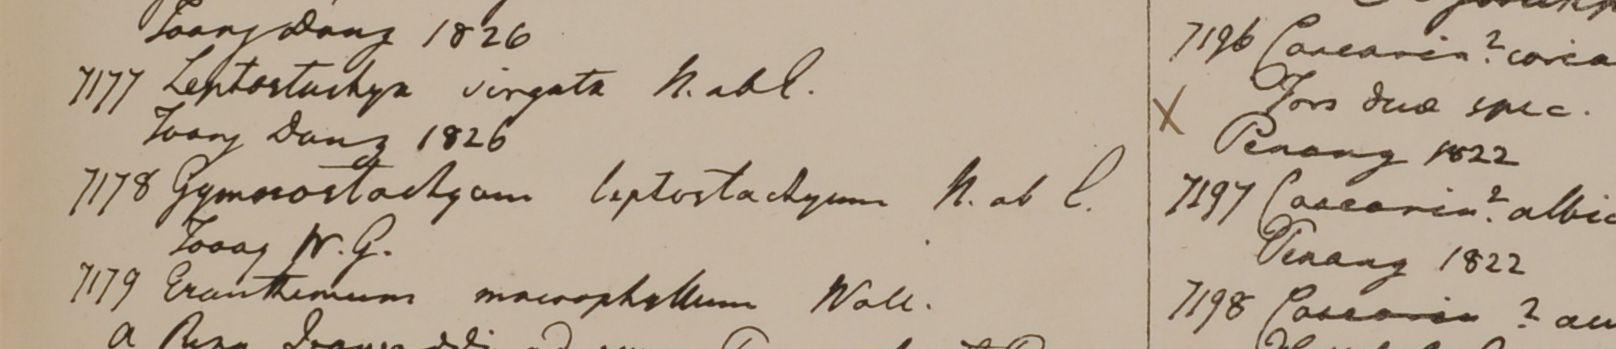 Toong Dong 1826
7177 Leptostachya virgata N. ab E.
Toong Dong 1826
7178 Gymnostachyum leptostachyum N. ab E.
Toong W. G.
7179 Eranthemum macrophyllum Wall.
a
7196 Casearia? coria
X Fors duæ spec.
Penang 1822
7197 Casearia? albic
Penang 1822
7198 Casearia ?